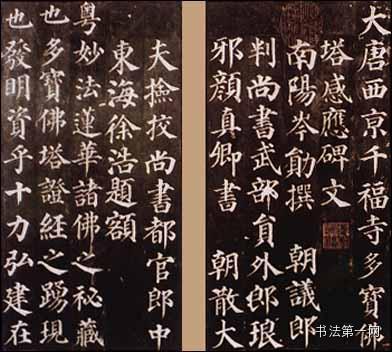 大唐西京千福寺多寶佛
塔感應碑文
南陽岑勛撰 朝議郎
判尚書武部員外郎琅
邪顏真卿書 朝散大
夫撿挍尚書都官郎中
東海徐浩題額
粵妙法蓮華諸佛之秘藏
也多寶佛塔證經之踴現
也發明資乎十力弘建在
书法第一网